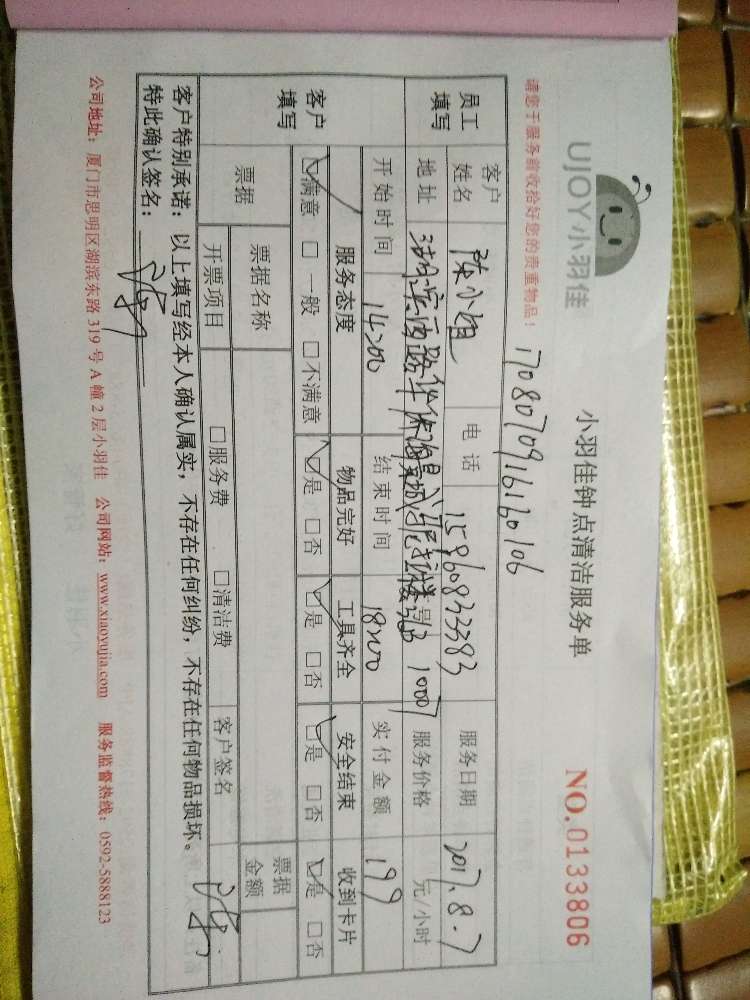 UJOY小羽佳
小羽佳钟点清洁服务单
NO.0133806
请您于服务前收拾好您的贵重物品！
170807091616 0106
员工填写
客户姓名 陈小姐 电话 15960833383 服务日期 2017.8.7
地址 湖滨西路 号 1000 服务价格 元/小时
开始时间 14:00 结束时间 18:00 实付金额 199
客户填写
服务态度 物品完好 工具齐全 安全结束 收到卡片
☑满意 □一般 □不满意 ☑是 □否 ☑是 □否 ☑是 □否 ☑是 □否
票据
票据名称 票据金额
开票项目 □服务费 □清洁费 客户签名
客户特别承诺：以上填写经本人确认属实，不存在任何纠纷，不存在任何物品损坏。
特此确认签名：
公司地址：厦门市思明区湖滨东路 319 号 A 幢 2 层小羽佳 公司网站：www.xiaoyujia.com 服务监督热线：0592-5888123